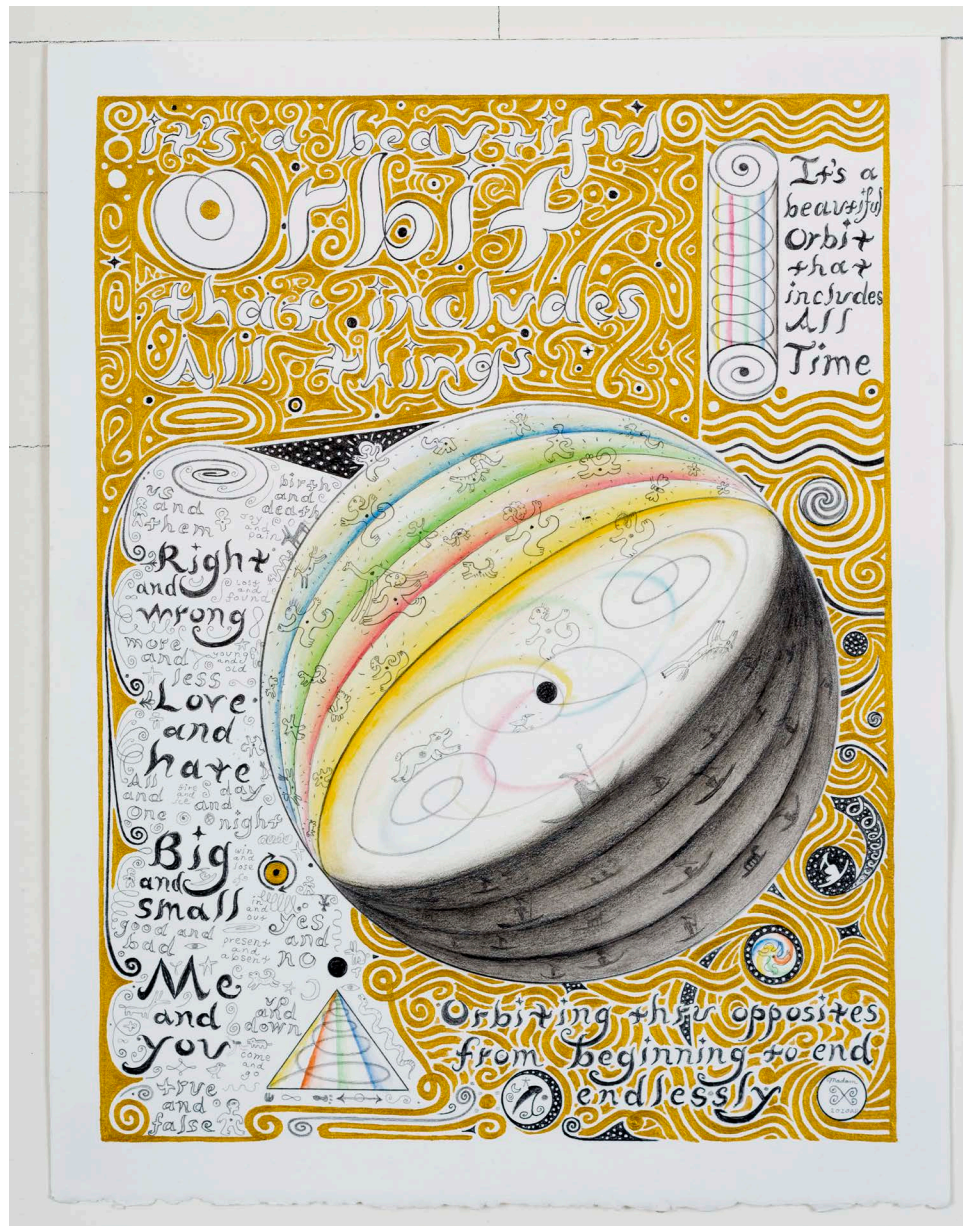 it's a beautiful
Orbit
that includes
All things
It's a
beautiful
Orbit
that
includes
All
Time
us
and
them
birth
and
death
joy
and
pain
Right
and
wrong
lost
and
found
more
and
less
young
and
old
Love
and
hate
All
and
One
fire
and
ice
day
and
night
Big
and
small
win
and
lose
good and
bad
in
and
out
yes
and
no
present
and
absent
Me
and
you
up
and
down
come
and
go
true
and
false
Orbiting thru opposites
from beginning to end
endlessly
Madam
X